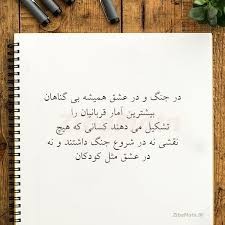 در جنگ و در عشق همیشه بی گناهان
بیشترین آمار قربانیان را
تشکیل می دهند کسانی که هیچ
نقشی نه در شروع جنگ داشتند و نه
در عشق مثل کودکان